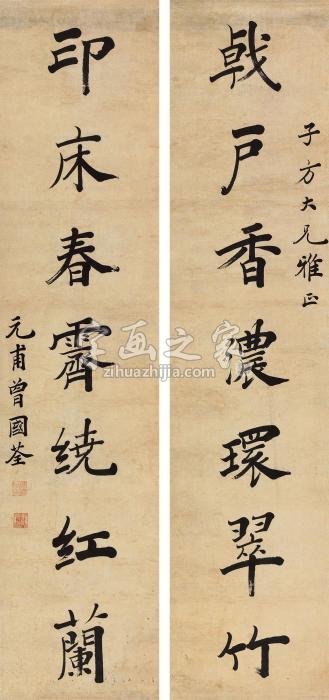 子方大兄雅正
戟户香濃環翠竹
印床春霽绕红蘭
元甫曾國荃
字画之家
zihuazhijia.com